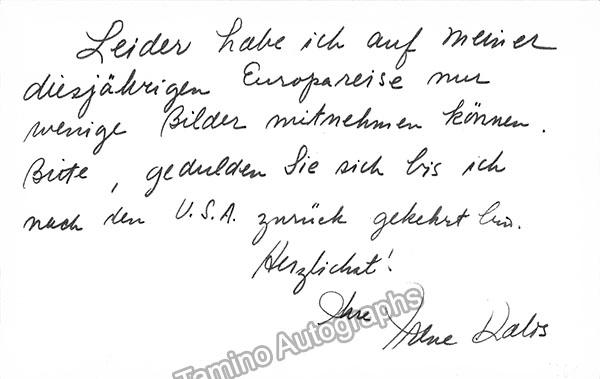 Leider habe ich auf meiner
diesjährigen Europareise nur
wenige Bilder mitnehmen können.
Bitte, gedulden Sie sich bis ich
nach den U.S.A. zurück gekehrt bin.
Herzlichst!
Ihre Irene Dalis
Tamino Autographs